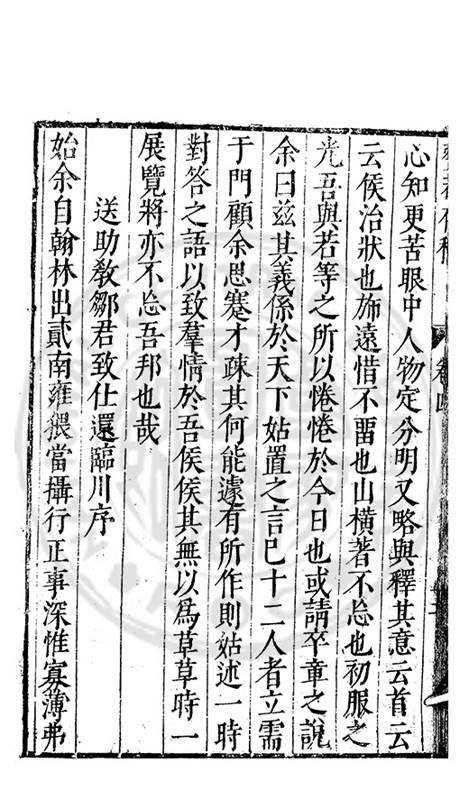 心知更苦眼中人物定分明又略與釋其意云首云
云侯治狀也斾遠惜不畱也山橫著不忘也初服之
光吾與若等之所以惓惓於今日也或請卒章之說
余曰茲其義係於天下姑置之言已十二人者立需
于門顧余思蹇才疎其何能遽有所作則姑述一時
對答之語以致羣情於吾侯侯其無以為草草時一
展覽將亦不忘吾邦也哉
送助敎鄒君致仕還臨川序
始余自翰林出貳南雍猥當攝行正事深惟寡薄弗